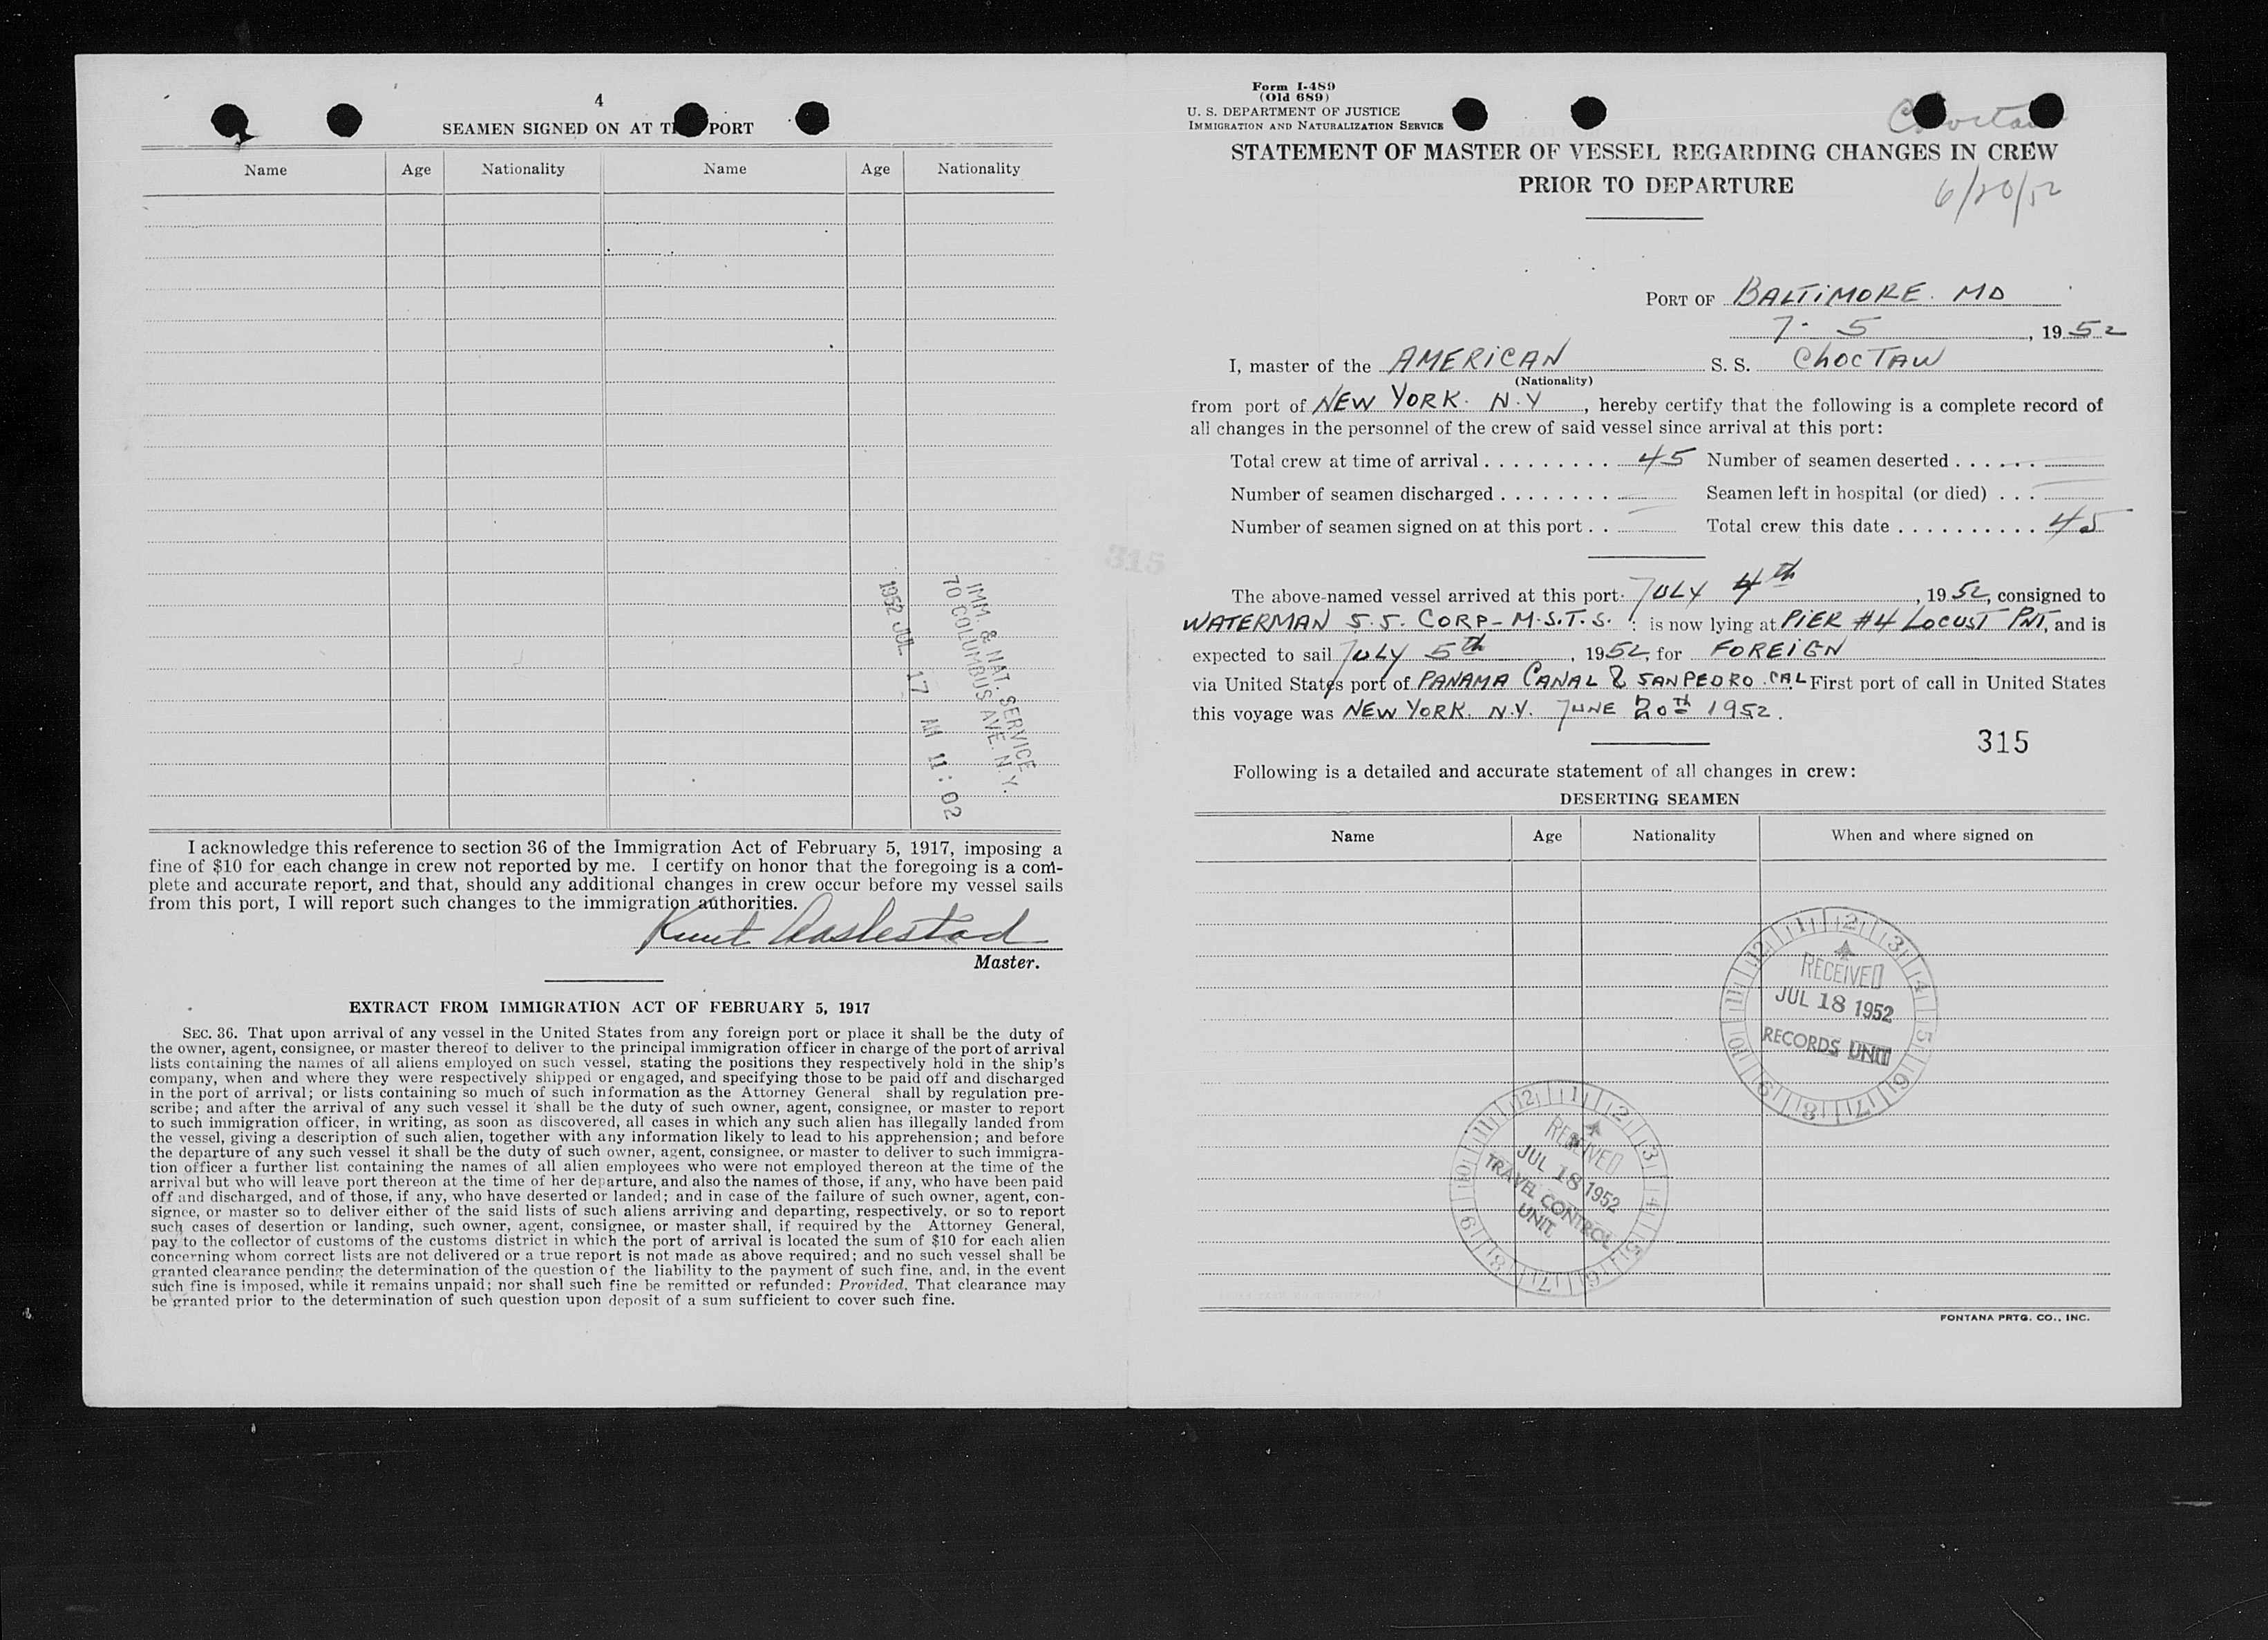 4
SEAMEN SIGNED ON AT PORT
Name Age Nationality Name Age Nationality
IMM. & NAT. SERVICE
70 COLUMBUS AVE. N.Y.
1952 JUL 17 AM 11:02
I acknowledge this reference to section 36 of the Immigration Act of February 5, 1917, imposing a
fine of $10 for each change in crew not reported by me. I certify on honor that the foregoing is a com-
plete and accurate report, and that, should any additional changes in crew occur before my vessel sails
from this port, I will report such changes to the immigration authorities.
Knut Aaslestad
Master.
EXTRACT FROM IMMIGRATION ACT OF FEBRUARY 5, 1917
SEC. 36. That upon arrival of any vessel in the United States from any foreign port or place it shall be the duty of
the owner, agent, consignee, or master thereof to deliver to the principal immigration officer in charge of the port of arrival
lists containing the names of all aliens employed on such vessel, stating the positions they respectively hold in the ship's
company, when and where they were respectively shipped or engaged, and specifying those to be paid off and discharged
in the port of arrival; or lists containing so much of such information as the Attorney General shall by regulation pre-
scribe; and after the arrival of any such vessel it shall be the duty of such owner, agent, consignee, or master to report
to such immigration officer, in writing, as soon as discovered, all cases in which any such alien has illegally landed from
the vessel, giving a description of such alien, together with any information likely to lead to his apprehension; and before
the departure of any such vessel it shall be the duty of such owner, agent, consignee, or master to deliver to such immigra-
tion officer a further list containing the names of all alien employees who were not employed thereon at the time of the
arrival but who will leave port thereon at the time of her departure, and also the names of those, if any, who have been paid
off and discharged, and of those, if any, who have deserted or landed; and in case of the failure of such owner, agent, con-
signee, or master so to deliver either of the said lists of such aliens arriving and departing, respectively, or so to report
such cases of desertion or landing, such owner, agent, consignee, or master shall, if required by the Attorney General,
pay to the collector of customs of the customs district in which the port of arrival is located the sum of $10 for each alien
concerning whom correct lists are not delivered or a true report is not made as above required; and no such vessel shall be
granted clearance pending the determination of the question of the liability to the payment of such fine, and, in the event
such fine is imposed, while it remains unpaid; nor shall such fine be remitted or refunded: Provided, That clearance may
be granted prior to the determination of such question upon deposit of a sum sufficient to cover such fine.
Form I-489
(Old 689)
U. S. DEPARTMENT OF JUSTICE
IMMIGRATION AND NATURALIZATION SERVICE
Choctaw
STATEMENT OF MASTER OF VESSEL REGARDING CHANGES IN CREW
PRIOR TO DEPARTURE
6/20/52
PORT OF BALTIMORE. MD
7- 5, 1952
I, master of the AMERICAN S. S. CHOCTAW
(Nationality)
from port of NEW YORK. N.Y, hereby certify that the following is a complete record of
all changes in the personnel of the crew of said vessel since arrival at this port:
Total crew at time of arrival . . . . . . . . . 45 Number of seamen deserted . . . . . .
Number of seamen discharged . . . . . . . . Seamen left in hospital (or died) . . .
Number of seamen signed on at this port . . Total crew this date . . . . . . . . . . 45
315
The above-named vessel arrived at this port JULY 4th, 1952, consigned to
WATERMAN S.S. CORP - M.S.T.S. : is now lying at PIER #4 LOCUST PNT, and is
expected to sail JULY 5th, 1952, for FOREIGN
via United States port of PANAMA CANAL & SAN PEDRO. CAL First port of call in United States
this voyage was NEW YORK. N.Y. JUNE 20TH 1952.
315
Following is a detailed and accurate statement of all changes in crew:
DESERTING SEAMEN
Name Age Nationality When and where signed on
1 2 3 4 5 6 7 8 9 10 11 12
RECEIVED
JUL 18 1952
RECORDS UNIT
12 1 2 3 4 5 6 7 8 9 10 11
RECEIVED
JUL 18 1952
TRAVEL CONTROL
UNIT
FONTANA PRTG. CO., INC.